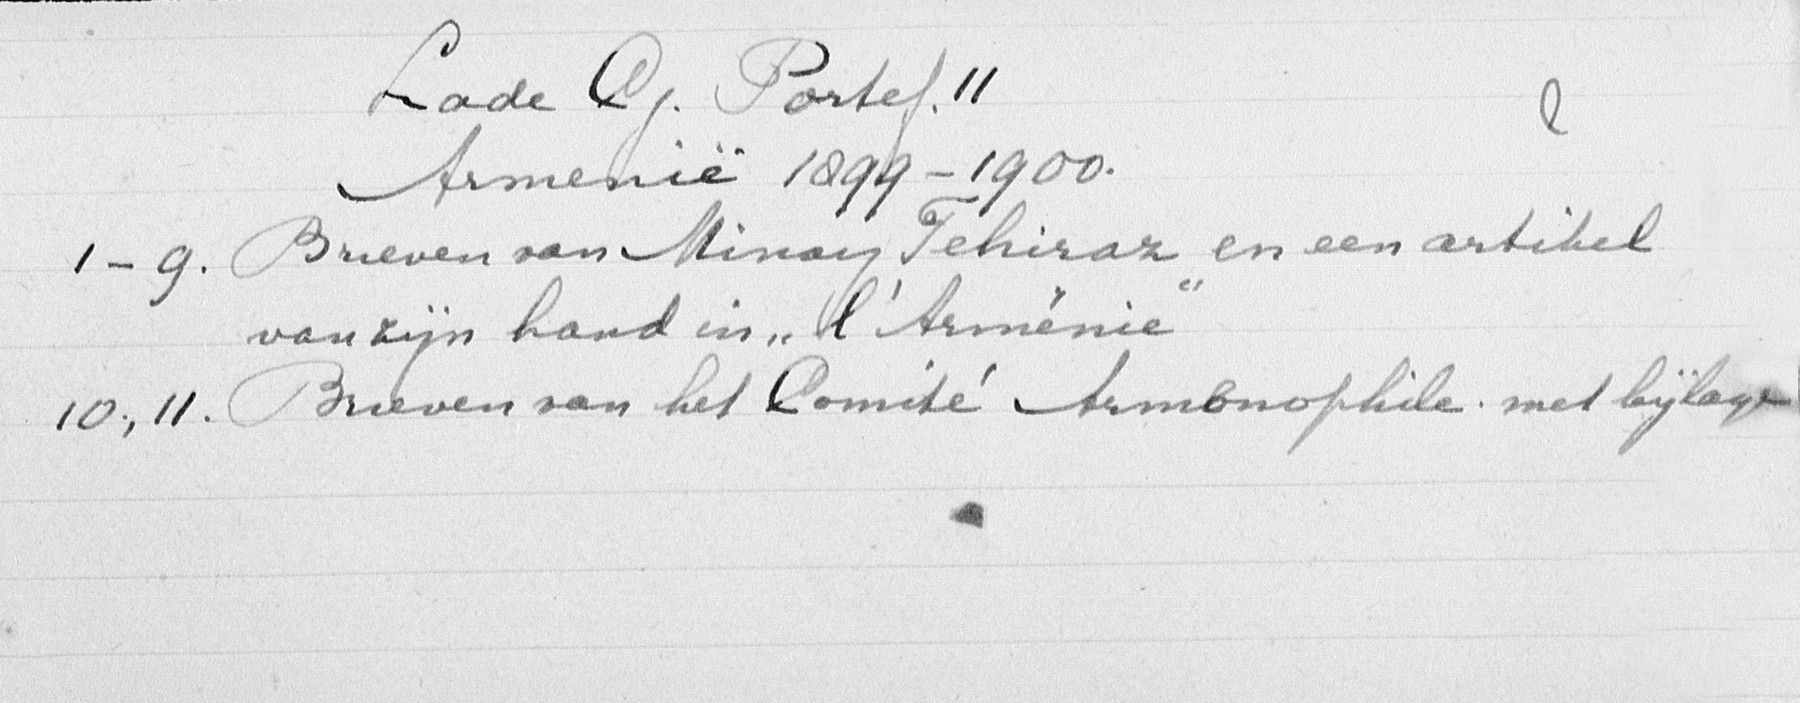 Lade Cj. Portef. 11
Armenië 1899-1900.
1-9. Brieven van Minas Tchiraz en een artikel
van zijn hand in „l'Arménie"
10, 11. Brieven van het Comité Arménophile met bijlage